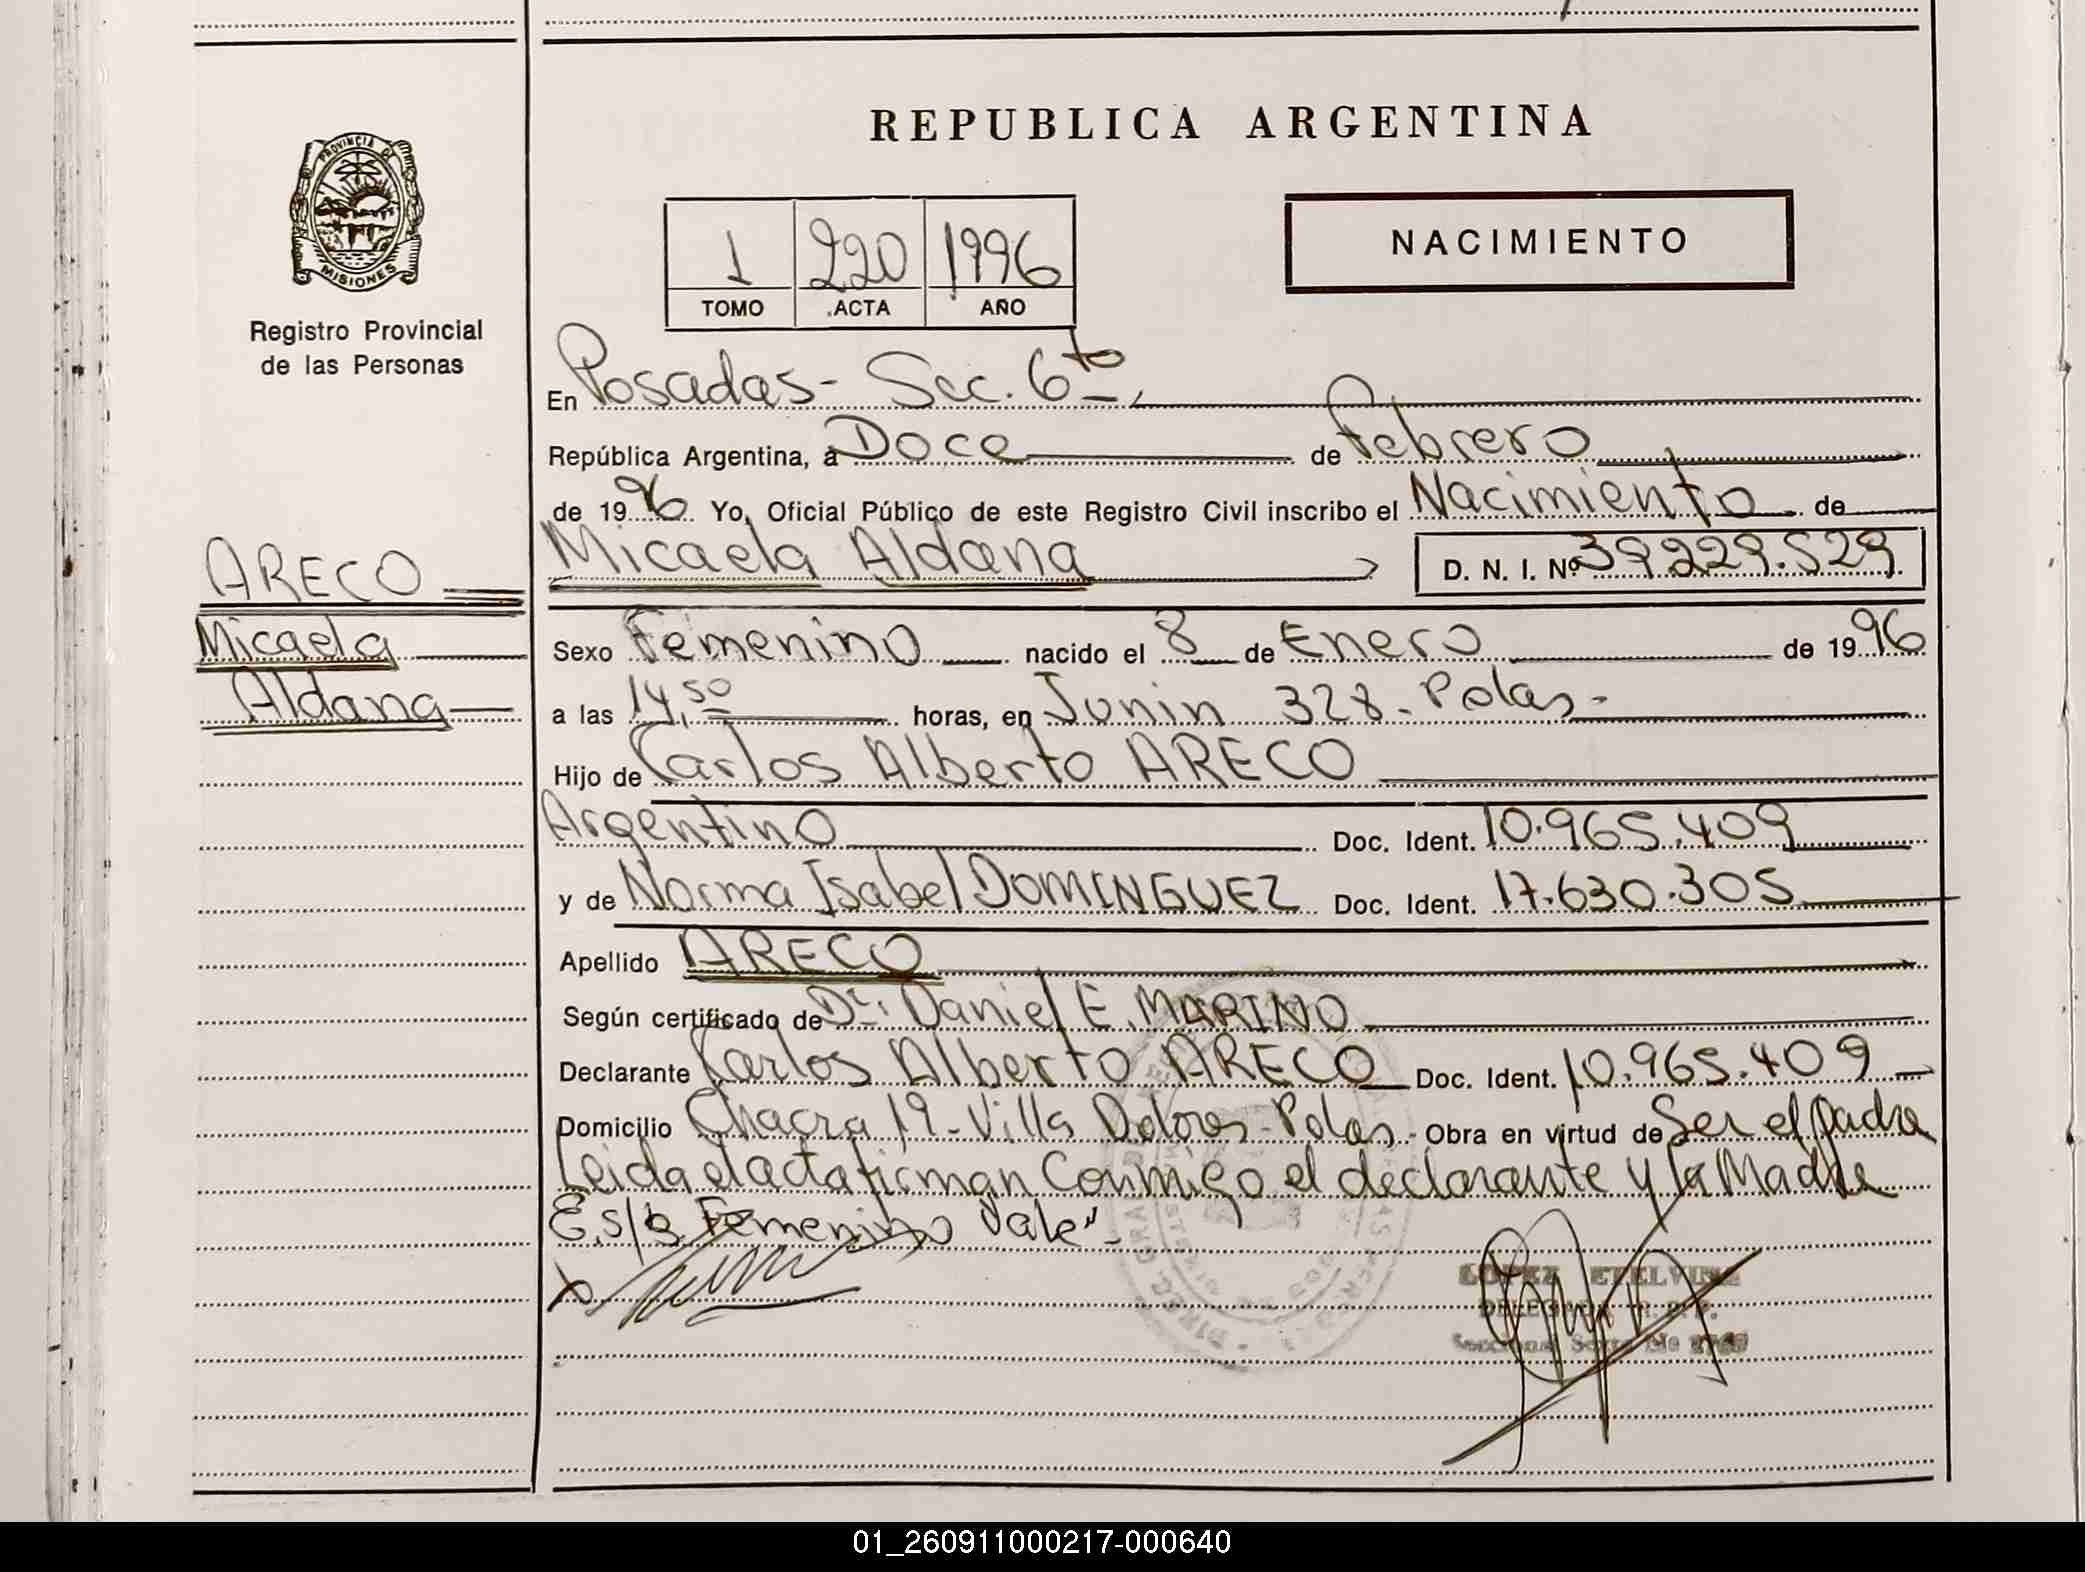 REPUBLICA ARGENTINA
PROVINCIA DE
MISIONES
Registro Provincial
de las Personas
1 220 1996
TOMO ACTA AÑO
NACIMIENTO
En Posadas - Sec. 6to,
República Argentina, a Doce de Febrero
de 1996 Yo, Oficial Público de este Registro Civil inscribo el Nacimiento de
Micaela Aldana D. N. I. Nº 39.229.529
ARECO
Micaela
Aldana
Sexo Femenino nacido el 8 de Enero de 1996
a las 14,50 horas, en Junin 328 - Pdas -
Hijo de Carlos Alberto ARECO
Argentino Doc. Ident. 10.965.409
y de Norma Isabel DOMINGUEZ Doc. Ident. 17.630.305
Apellido ARECO
Según certificado de Dr. Daniel E. MARINO
Declarante Carlos Alberto ARECO Doc. Ident. 10.965.409
Domicilio Chacra 19 - Villa Dolores - Pdas - Obra en virtud de Ser el padre
Leida el acta firman Conmigo el declarante y la Madre
E.s/b Femenino Vale" -
LOPEZ ETELVINA
DELEGADA R.P.P.
Seccional Sexta
01_260911000217-000640